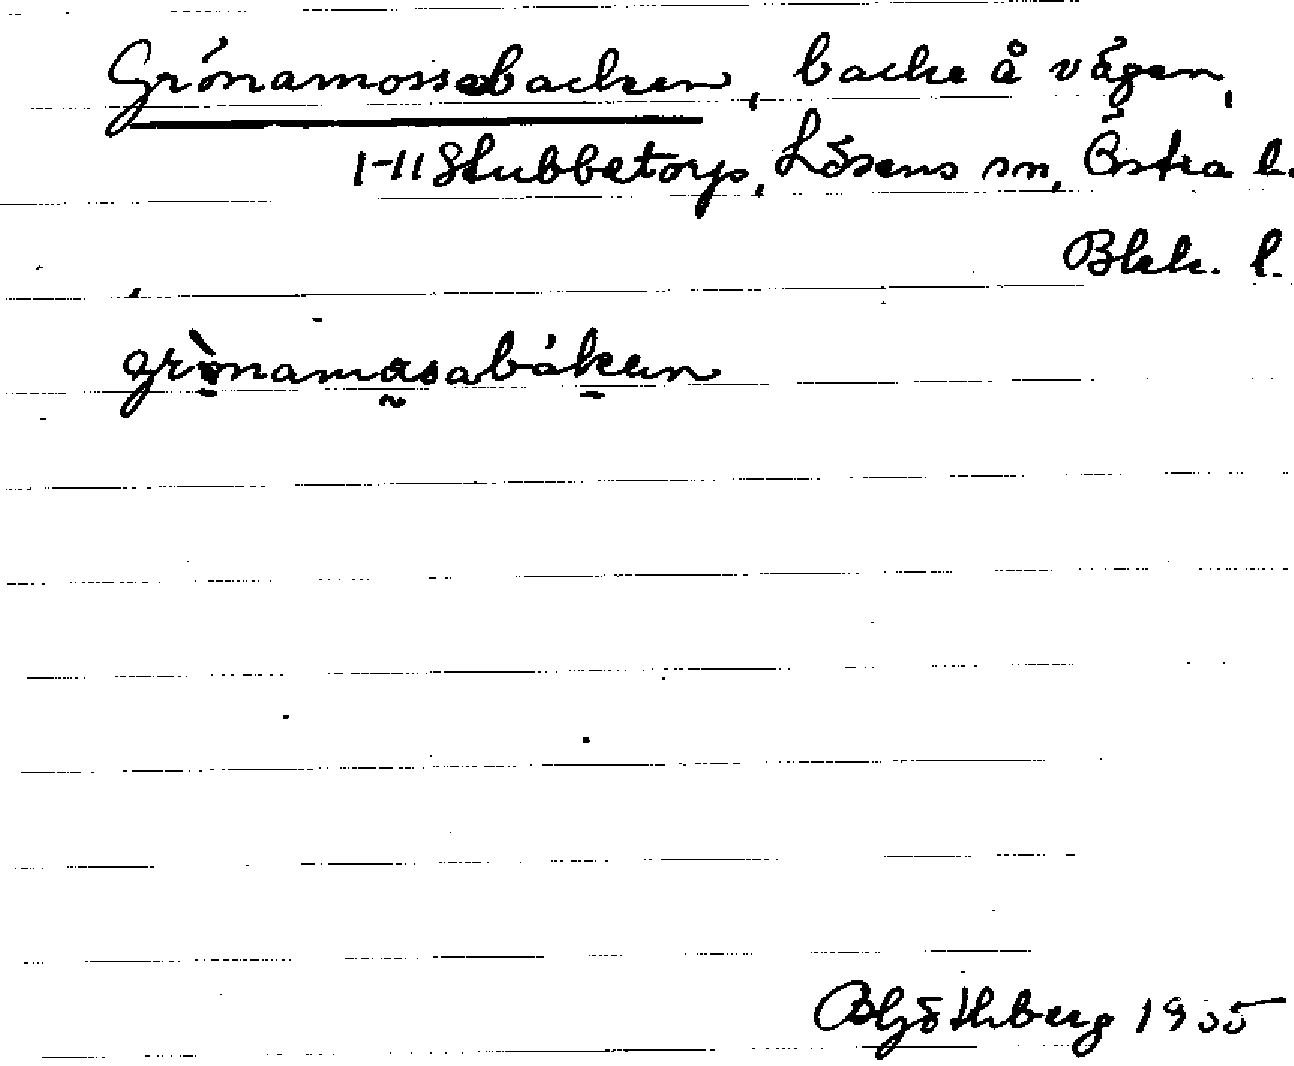 Grönamossabacken, backe å vägen,
1-11 Stubbetorp, Lösens sn, Östra h.
Blek. l.
grònamasabáken
B Göthberg 1935